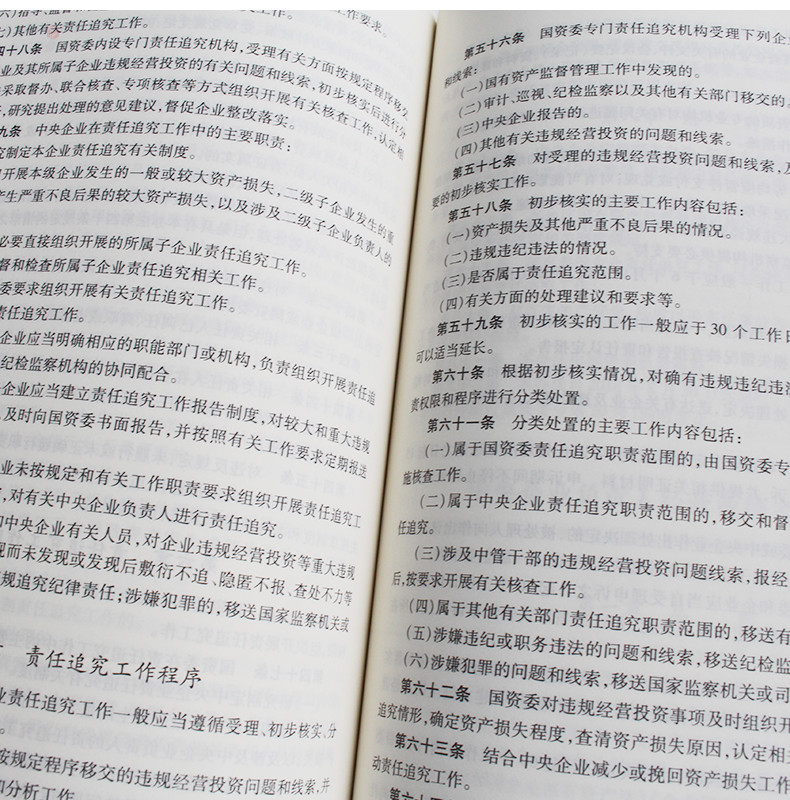 六)指导、监督和
工作要求。
七)其他有关责任追究工作。
四十八条 国资委内设专门责任追究机构,受理有关方面按规定程序移交
业及其所属子企业违规经营投资的有关问题和线索,初步核实后进行分
采取督办、联合核查、专项核查等方式组织开展有关核查工作,认定相
,研究提出处理的意见建议,督促企业整改落实。
九条 中央企业在责任追究工作中的主要职责:
究制定本企业责任追究有关制度。
开展本级企业发生的一般或较大资产损失,二级子企业发生的重
产生严重不良后果的较大资产损失,以及涉及二级子企业负责人的
必要直接组织开展的所属子企业责任追究工作。
督和检查所属子企业责任追究相关工作。
委要求组织开展有关责任追究工作。
责任追究工作。
企业应当明确相应的职能部门或机构,负责组织开展责任追
纪检监察机构的协同配合。
企业应当建立责任追究工作报告制度,对较大和重大违规
及时向国资委书面报告,并按照有关工作要求定期报送
业未按规定和有关工作职责要求组织开展责任追究工
,对有关中央企业负责人进行责任追究。
和中央企业有关人员,对企业违规经营投资等重大违规
现而未发现或发现后敷衍不追、隐匿不报、查处不力等
规追究纪律责任;涉嫌犯罪的,移送国家监察机关或
责任追究工作程序
业责任追究工作一般应当遵循受理、初步核实、分
按规定程序移交的违规经营投资问题和线索,并
和分析工作
第五十六条 国资委专门责任追究机构受理下列企
和线索:
(一)国有资产监督管理工作中发现的。
(二)审计、巡视、纪检监察以及其他有关部门移交的。
(三)中央企业报告的。
(四)其他有关违规经营投资的问题和线索。
第五十七条 对受理的违规经营投资问题和线索,及
要的初步核实工作。
第五十八条 初步核实的主要工作内容包括:
(一)资产损失及其他严重不良后果的情况。
(二)违规违纪违法的情况。
(三)是否属于责任追究范围。
(四)有关方面的处理建议和要求等。
第五十九条 初步核实的工作一般应于30个工作日
可以适当延长。
第六十条 根据初步核实情况,对确有违规违纪违法
责权限和程序进行分类处置。
第六十一条 分类处置的主要工作内容包括:
(一)属于国资委责任追究职责范围的,由国资委专
施核查工作。
(二)属于中央企业责任追究职责范围的,移交和督
任追究。
(三)涉及中管干部的违规经营投资问题线索,报经
后,按要求开展有关核查工作。
(四)属于其他有关部门责任追究职责范围的,移送有
(五)涉嫌违纪或职务违法的问题和线索,移送纪检监
(六)涉嫌犯罪的问题和线索,移送国家监察机关或司
第六十二条 国资委对违规经营投资事项及时组织开
追究情形,确定资产损失程度,查清资产损失原因,认定相关
第六十三条 结合中央企业减少或挽回资产损失工作
动责任追究工作。